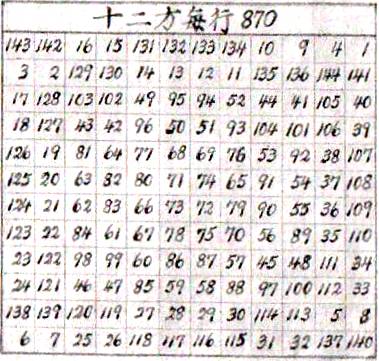 十二方每行870
143 142 16 15 131 132 133 134 10 9 4 1
3 2 129 130 14 13 12 11 135 136 144 141
17 128 103 102 49 95 94 52 44 41 105 40
18 127 43 42 96 50 51 93 104 101 106 39
126 19 81 64 77 68 69 76 53 92 38 107
125 20 63 82 80 71 74 65 91 54 37 108
124 21 62 83 66 73 72 79 90 55 36 109
123 22 84 61 67 78 75 70 56 89 35 110
23 122 98 99 60 86 87 57 45 48 111 34
24 121 46 47 85 59 58 88 97 100 112 33
138 139 120 119 27 28 29 30 114 113 5 8
6 7 25 26 118 117 116 115 31 32 137 140